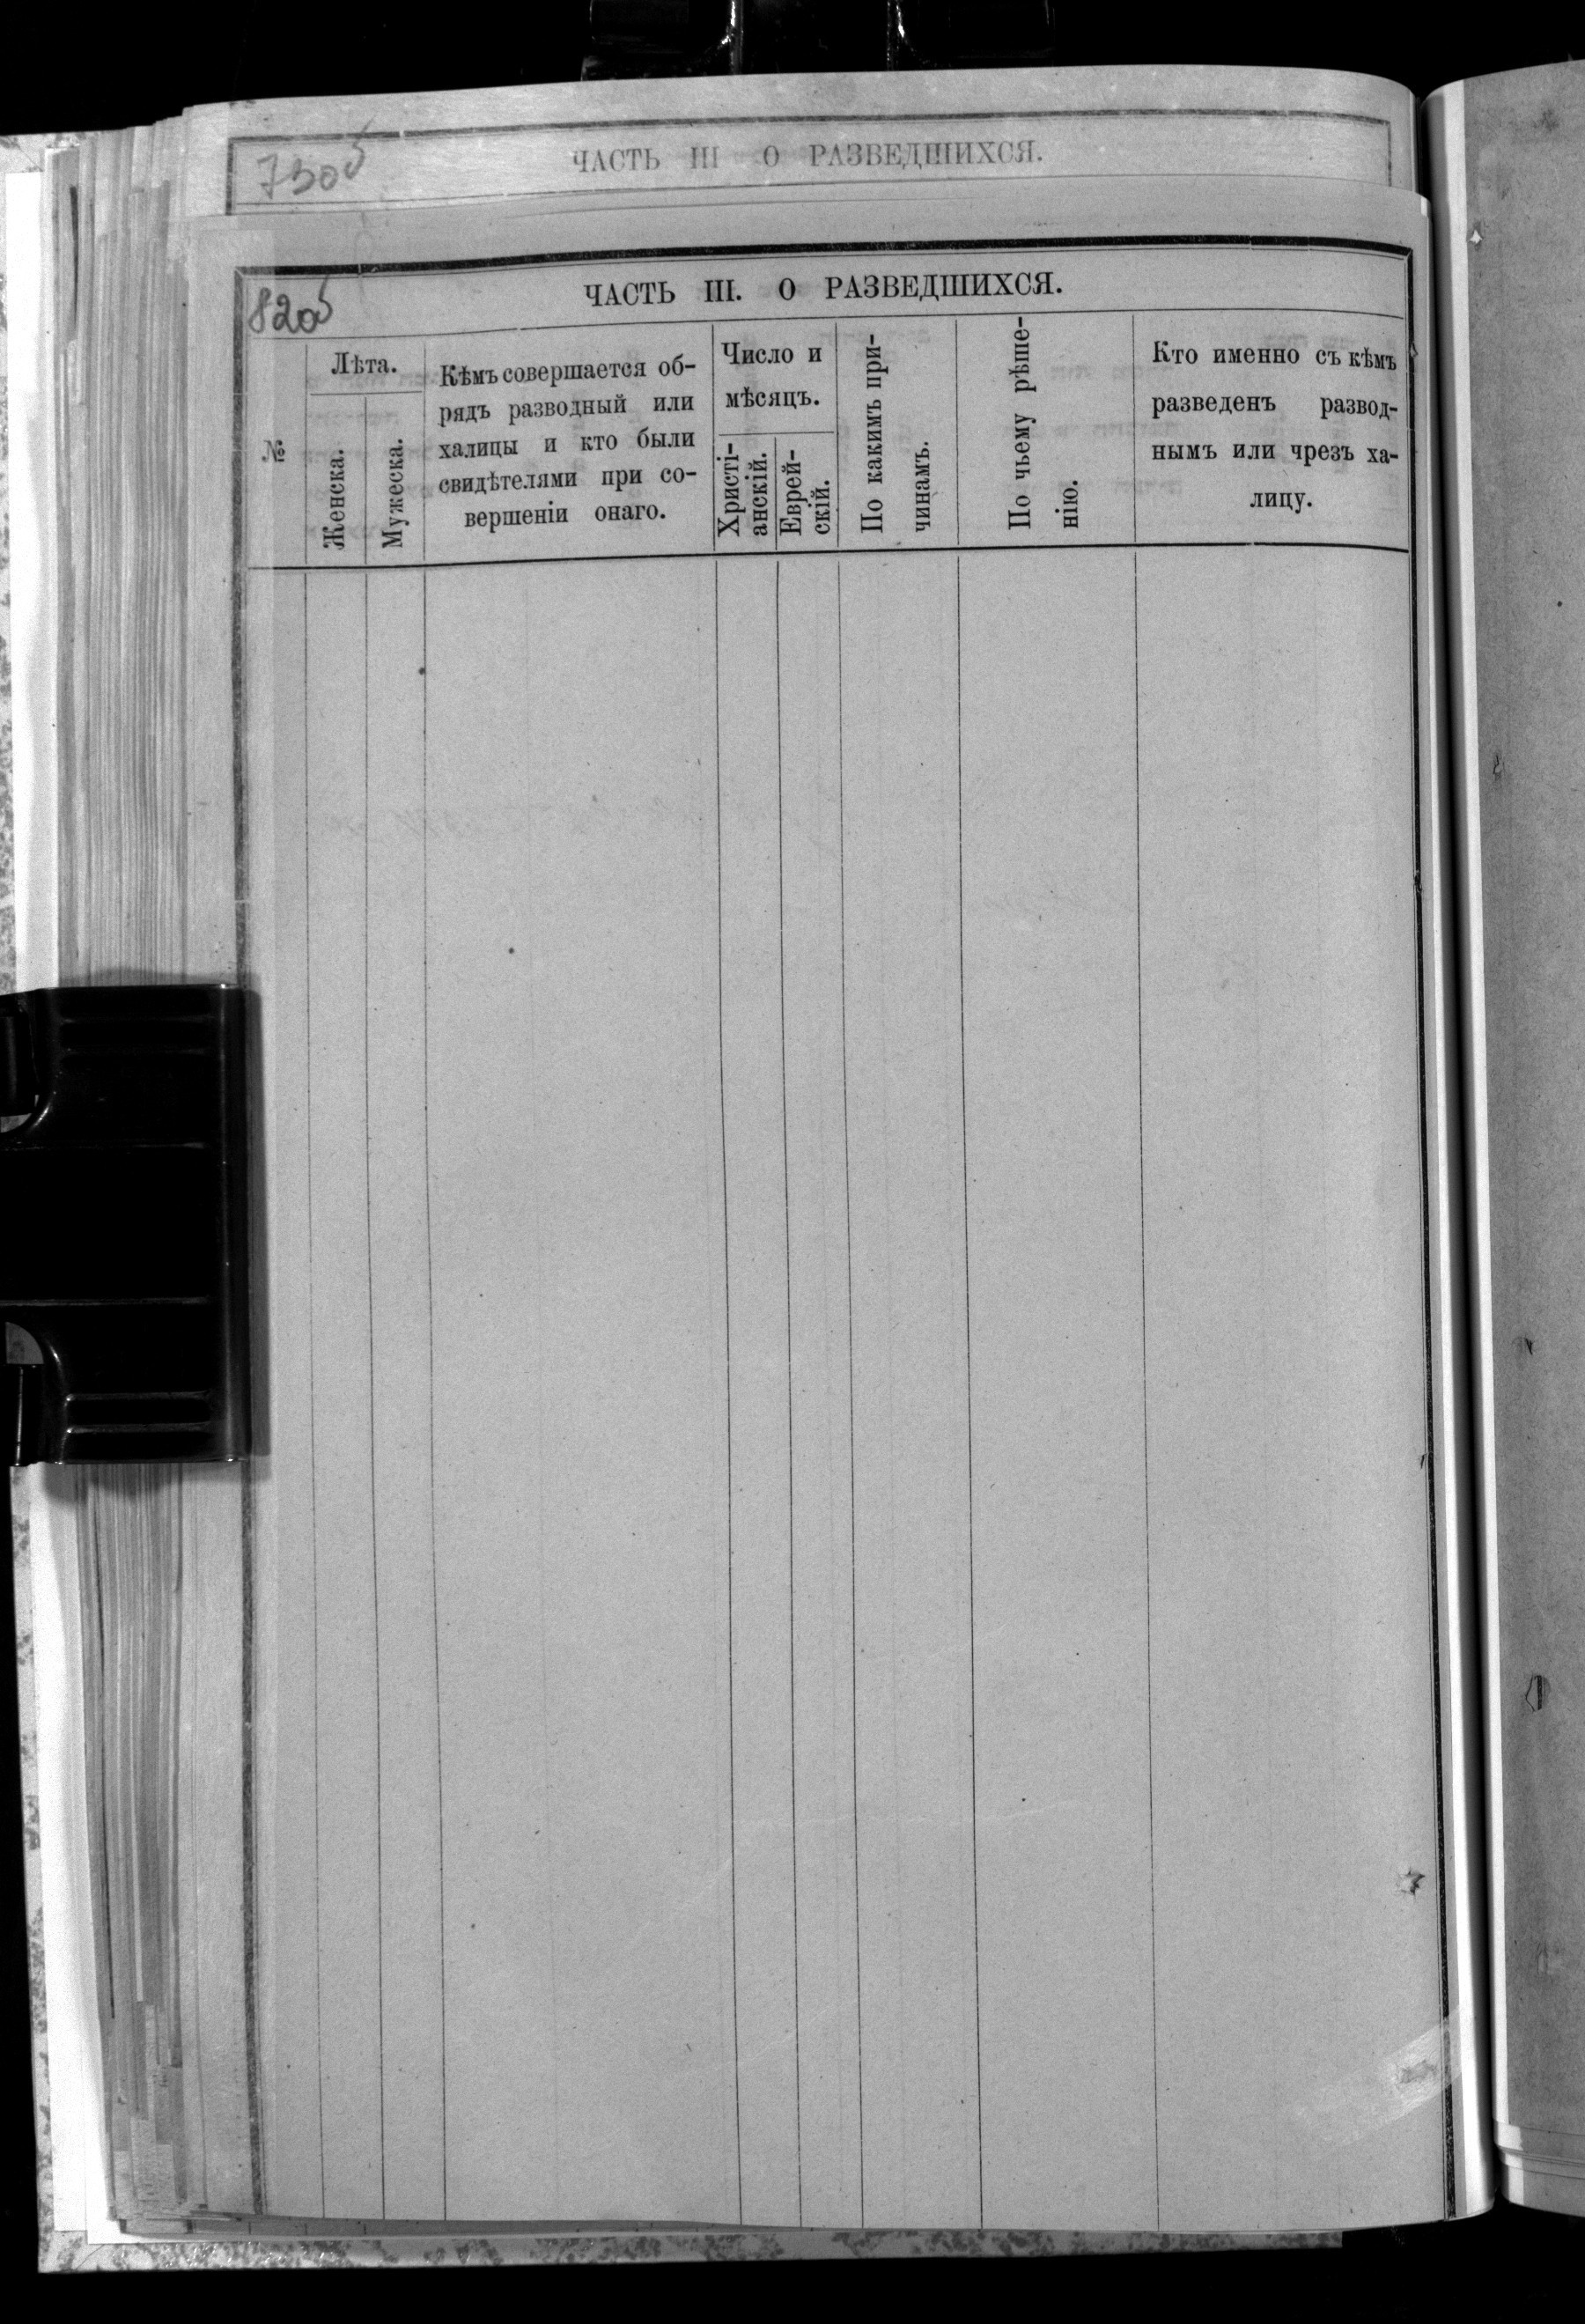 ЧАСТЬ III О РАЗВЕДШИХСЯ.
82об
ЧАСТЬ III. О РАЗВЕДШИХСЯ.
№
Лѣта.
Женска.
Мужеска.
Кѣмъ совершается об-
рядъ разводный или
халицы и кто были
свидѣтелями при со-
вершеніи онаго.
Число и
мѣсяцъ.
Христі-
анскій.
Еврей-
скій.
По какимъ при-
чинамъ.
По чьему рѣше-
нію.
Кто именно съ кѣмъ
разведенъ развод-
нымъ или чрезъ ха-
лицу.